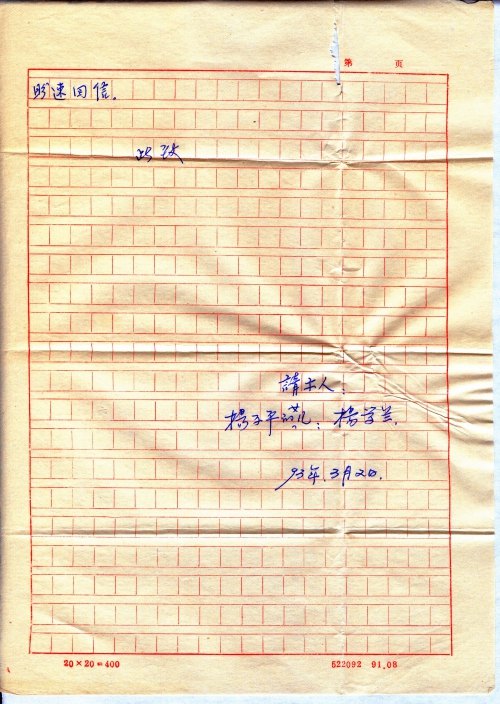 第 页
盼速回信.
此致
請求人:
杨子平 : 杨学兰.
93年.3月2日.
20×20=400
522092 91.08